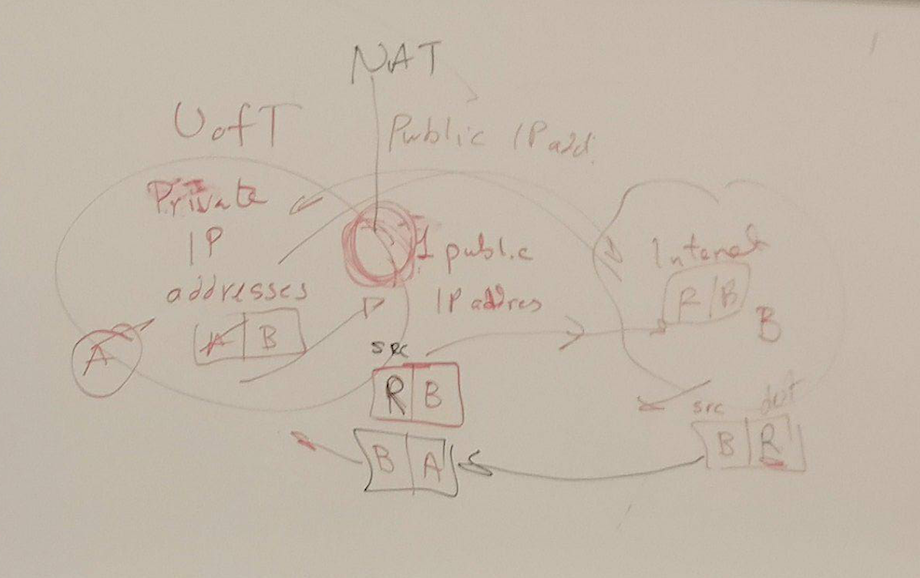 NAT
UofT
Public IP add.
Private
IP
addresses
1 public
IP addres
Internet
R B
B
A
A B
src
R B
src dest
B R
B A